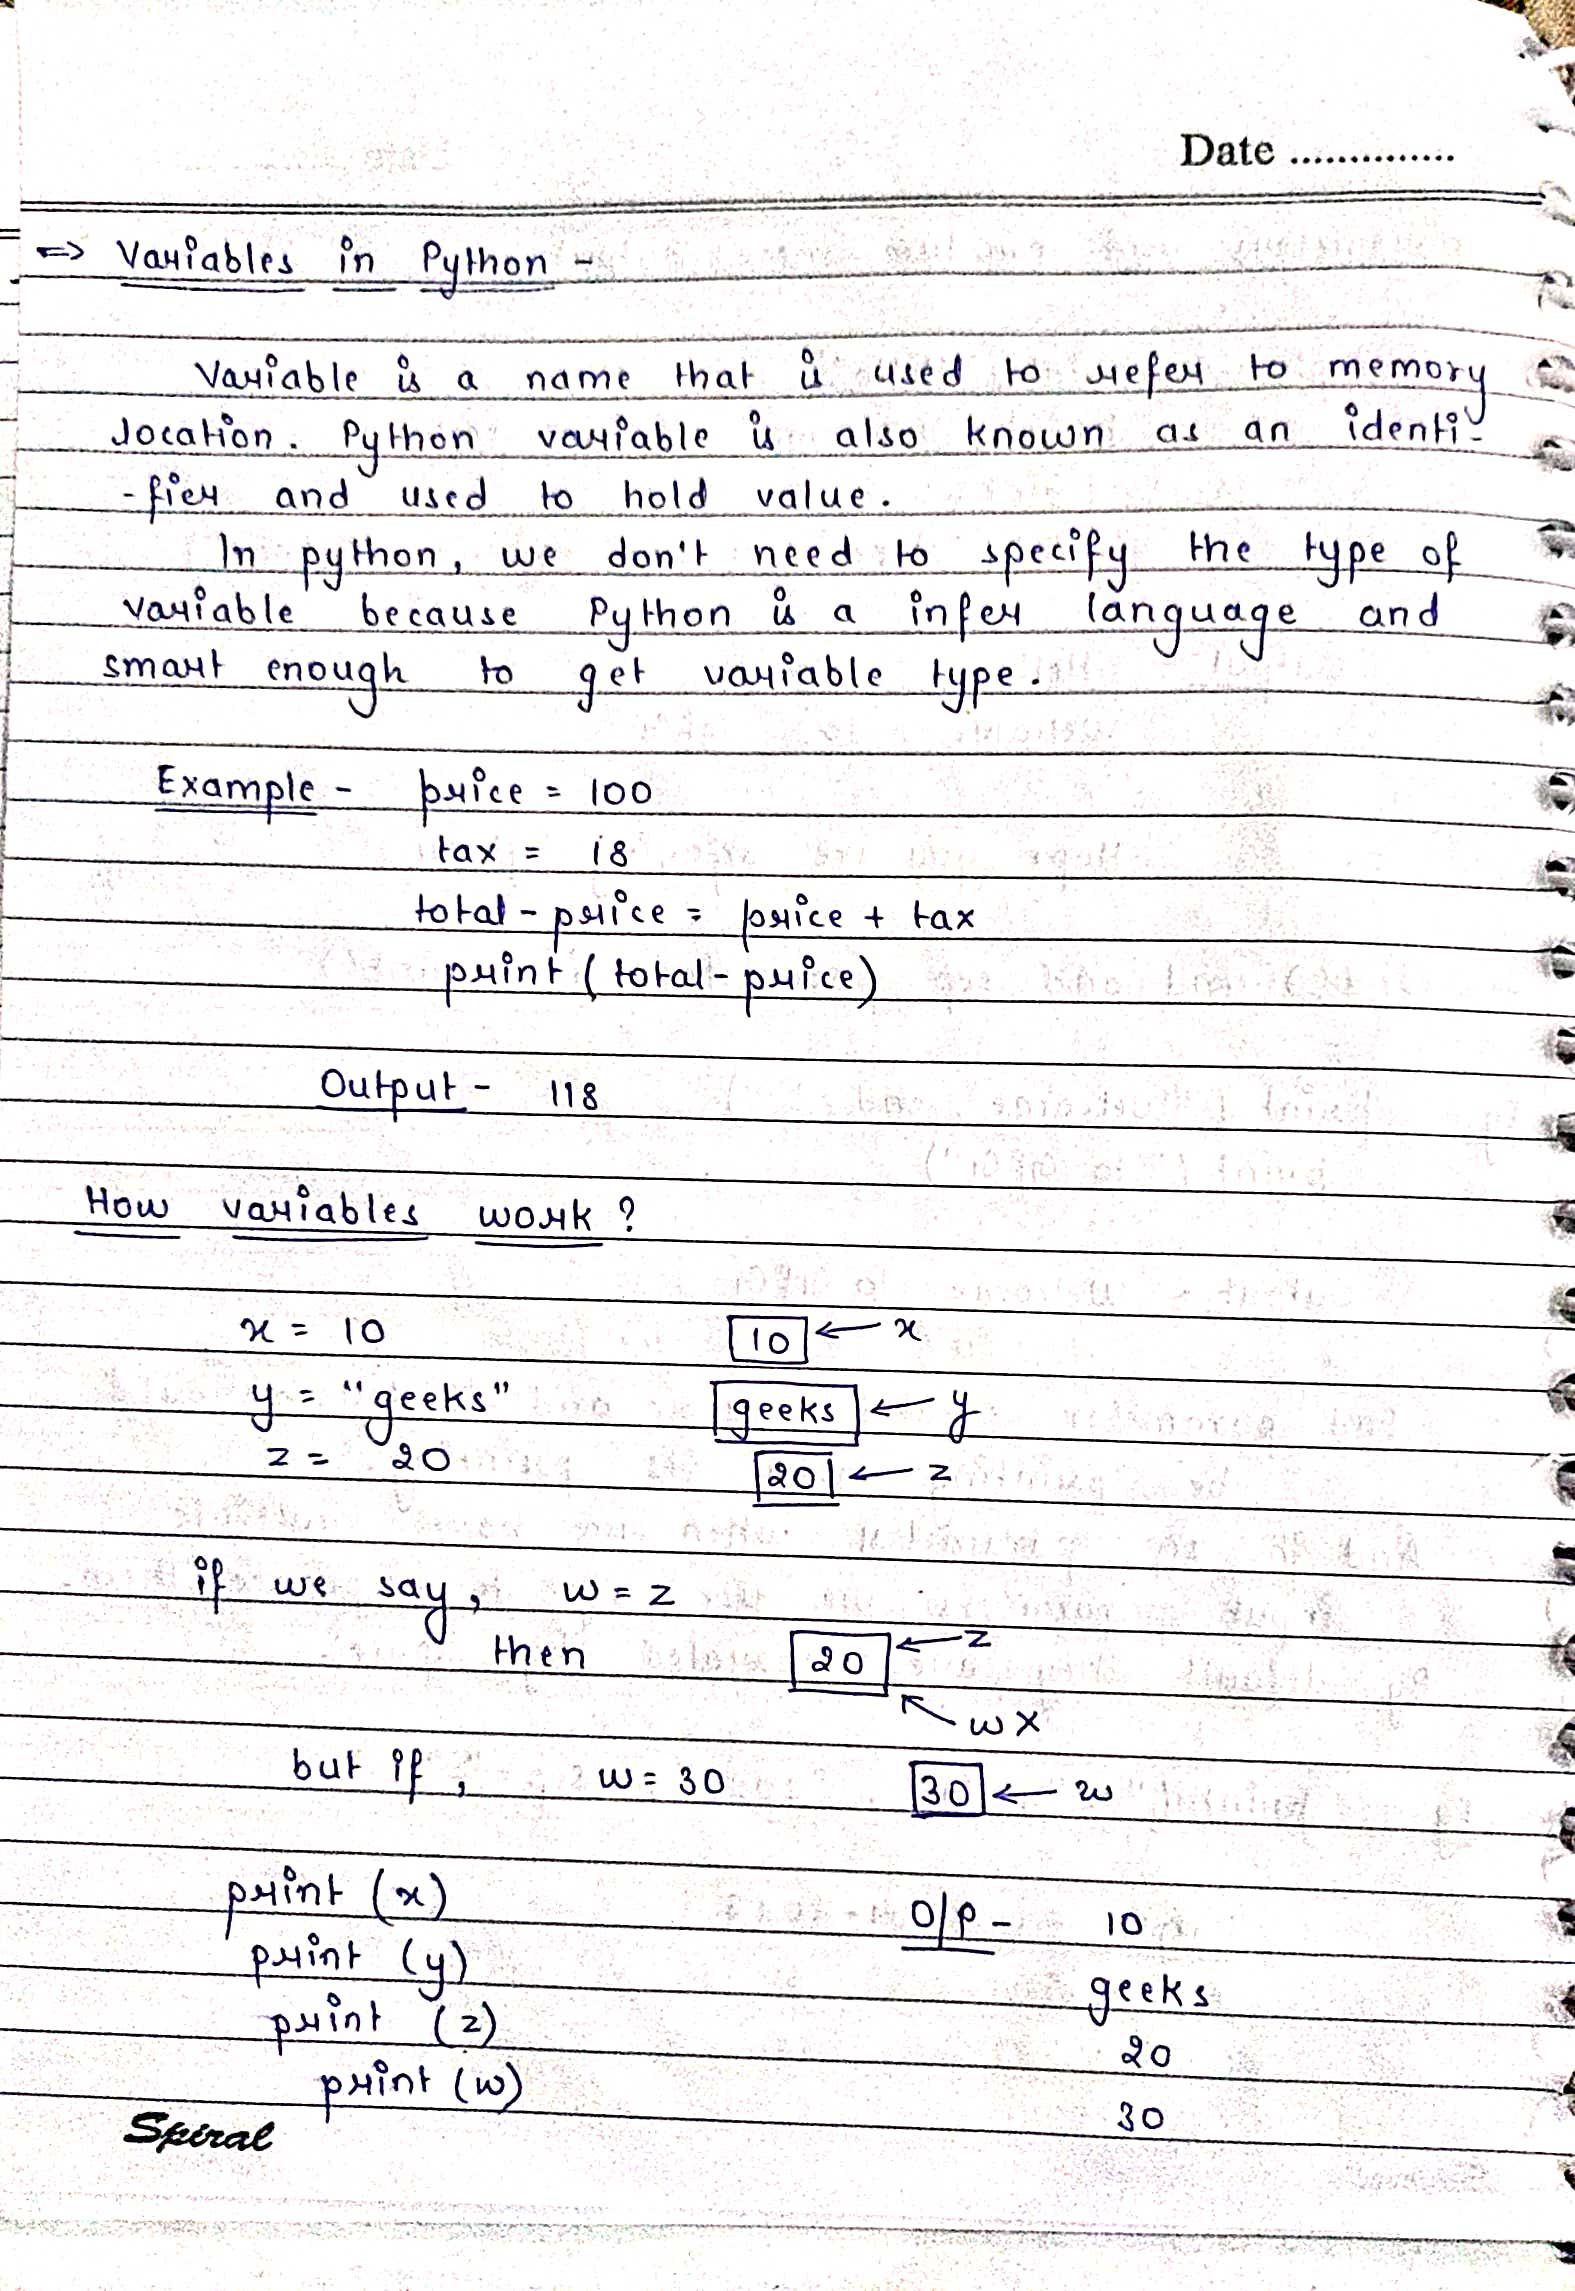 Date ...............
=> Variables in Python -
Variable is a name that is used to refer to memory
location. Python variable is also known as an identi-
-fier and used to hold value.
In python, we don't need to specify the type of
variable because Python is a infer language and
smart enough to get variable type.
Example - price = 100
tax = 18
total-price = price + tax
print (total-price)
Output - 118
How variables work ?
x = 10 10 ← x
y = "geeks" geeks ← y
z = 20 20 ← z
if we say, w = z
then 20 ← z
↖ w x
but if, w = 30 30 ← w
print (x) O/P - 10
print (y) geeks
print (z) 20
print (w) 30
Spiral